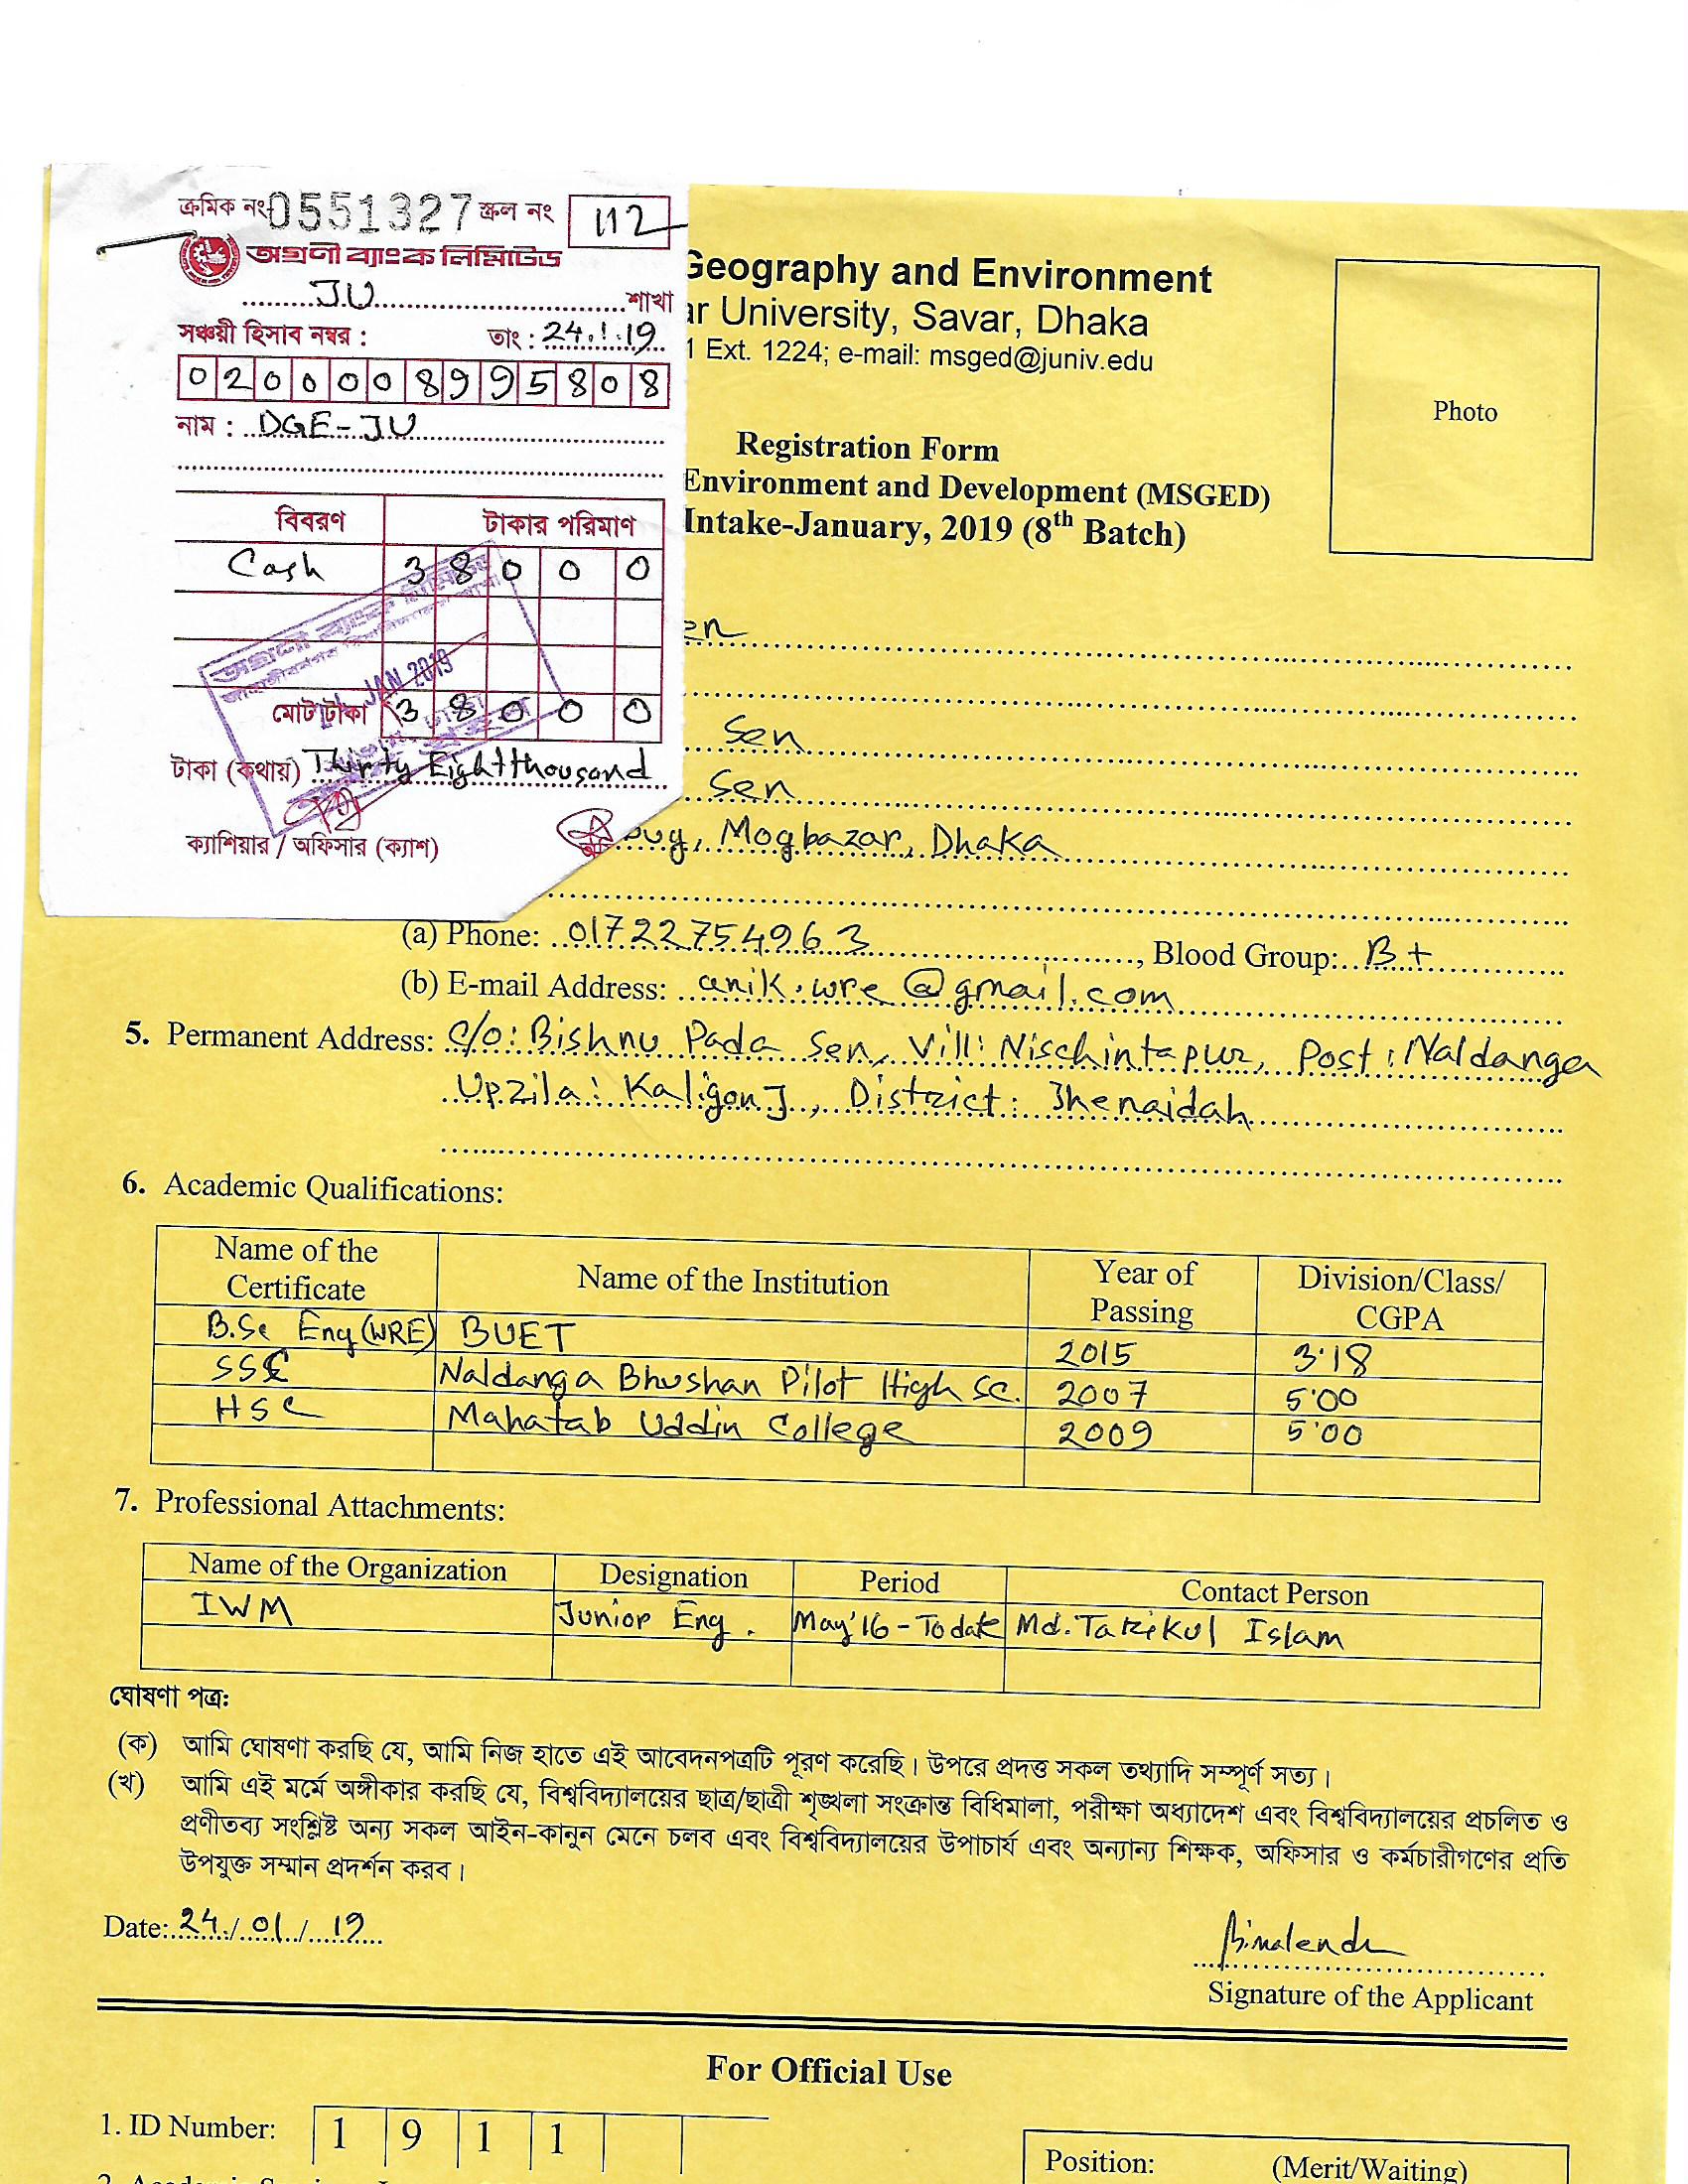 ক্রমিক নং 0551327 স্ক্রল নং 112
অগ্রণী ব্যাংক লিমিটেড
JU শাখা
সঞ্চয়ী হিসাব নম্বর : তাং : 24.1.19
0200008995808
নাম : DGE-JU
বিবরণ টাকার পরিমাণ
Cash 38000
JAN 2019
মোট টাকা 38000
টাকা (কথায়) Thirty Eight thousand
ক্যাশিয়ার / অফিসার (ক্যাশ)
Geography and Environment
ar University, Savar, Dhaka
1 Ext. 1224; e-mail: msged@juniv.edu
Photo
Registration Form
Environment and Development (MSGED)
Intake-January, 2019 (8th Batch)
en
Sen
Sen
Mogbazar, Dhaka
(a) Phone: 01722754963, Blood Group: B+
(b) E-mail Address: anik.wre@gmail.com
5. Permanent Address: C/o: Bishnu Pada Sen, Vill: Nischintapur, Post: Naldanga
Upzila: Kaligonj, District: Jhenaidah
6. Academic Qualifications:
Name of the Certificate Name of the Institution Year of Passing Division/Class/CGPA
B.Sc Eng (WRE) BUET 2015 3.18
SSC Naldanga Bhushan Pilot High Sc. 2007 5.00
HSC Mahatab Uddin College 2009 5.00
7. Professional Attachments:
Name of the Organization Designation Period Contact Person
IWM Junior Eng. May'16 - To date Md. Tarikul Islam
ঘোষণা পত্র:
(ক) আমি ঘোষণা করছি যে, আমি নিজ হাতে এই আবেদনপত্রটি পূরণ করেছি। উপরে প্রদত্ত সকল তথ্যাদি সম্পূর্ণ সত্য।
(খ) আমি এই মর্মে অঙ্গীকার করছি যে, বিশ্ববিদ্যালয়ের ছাত্র/ছাত্রী শৃঙ্খলা সংক্রান্ত বিধিমালা, পরীক্ষা অধ্যাদেশ এবং বিশ্ববিদ্যালয়ের প্রচলিত ও
প্রণীতব্য সংশ্লিষ্ট অন্য সকল আইন-কানুন মেনে চলব এবং বিশ্ববিদ্যালয়ের উপাচার্য এবং অন্যান্য শিক্ষক, অফিসার ও কর্মচারীগণের প্রতি
উপযুক্ত সম্মান প্রদর্শন করব।
Date: 24/01/19
Bimalendu
Signature of the Applicant
For Official Use
1. ID Number: 1 9 1 1
Position: (Merit/Waiting)